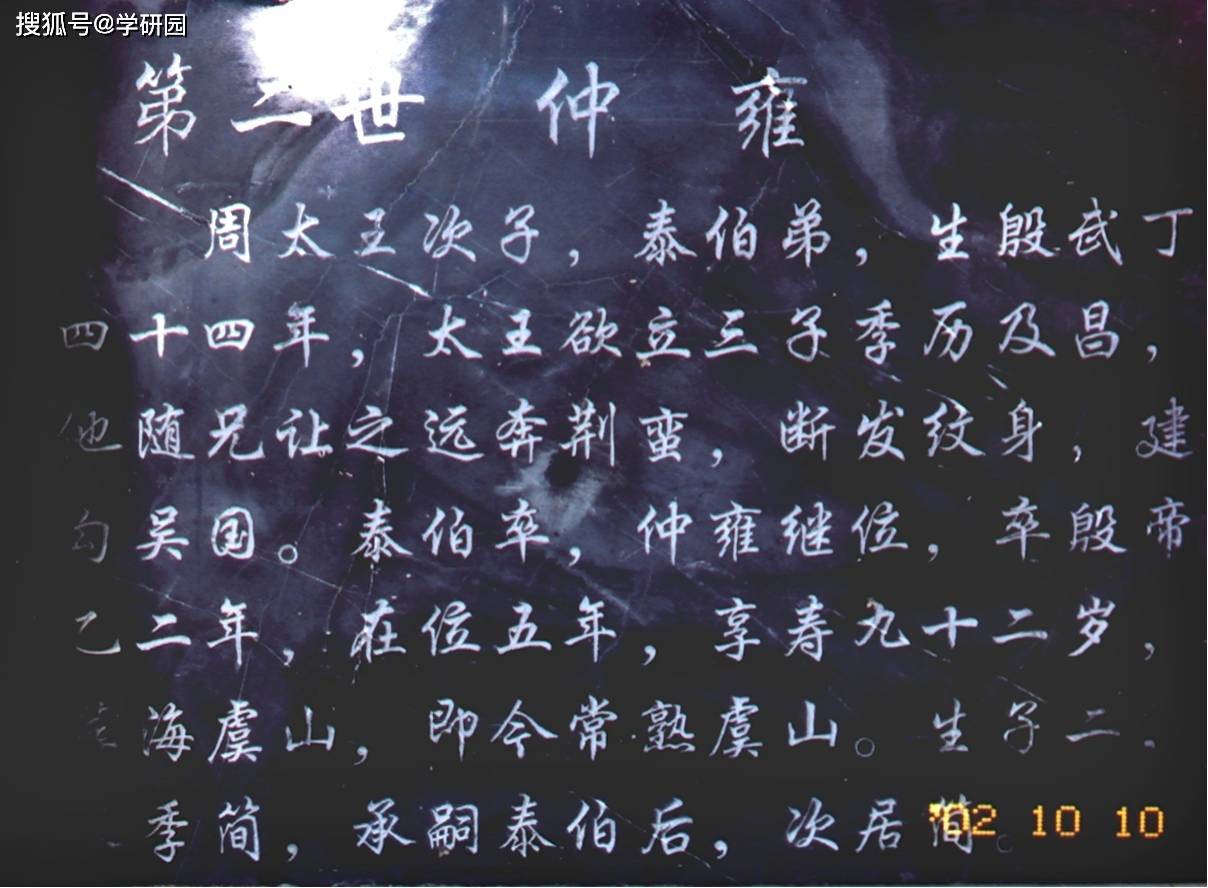 搜狐号@学研园
第二世 仲雍
周太王次子，泰伯弟，生殷武丁
四十四年，太王欲立三子季历及昌，
他随兄让之远奔荆蛮，断发纹身，建
勾吴国。泰伯卒，仲雍继位，卒殷帝
乙二年，在位五年，享寿九十二岁，
海虞山，即今常熟虞山。生子二。
季简，承嗣泰伯后，次居简。
'02 10 10